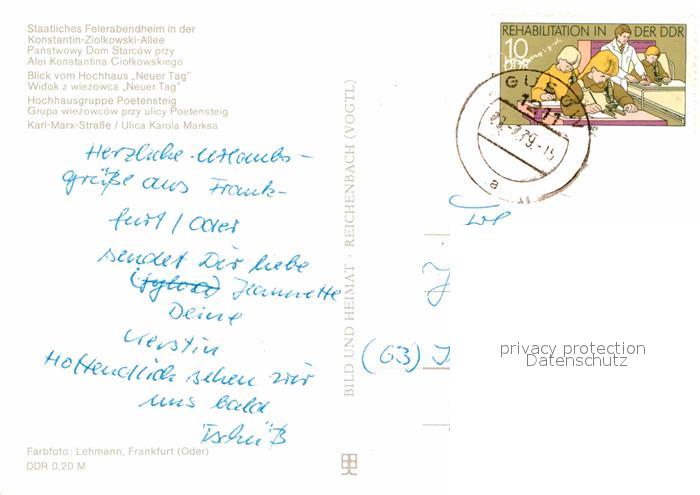 Staatliches Feierabendheim in der
Konstantin-Ziolkowski-Allee
Państwowy Dom Starców przy
Alei Konstantina Ciołkowskiego
Blick vom Hochhaus „Neuer Tag"
Widok z wieżowca „Neuer Tag"
Hochhausgruppe Poetensteig
Grupa wieżowców przy ulicy Poetensteig
Karl-Marx-Straße / Ulica Karola Marksa
Herzliche Urlaubs-
grüße aus Frank-
furt / Oder
sendet Dir liebe
Jeannette
Deine
Kerstin
Hoffendlich sehen wir
uns bald
Tschüß
Farbfoto: Lehmann, Frankfurt (Oder)
DDR 0,20 M
BILD UND HEIMAT · REICHENBACH (VOGTL)
REHABILITATION IN DER DDR
10
DDR
(63)
privacy protection
Datenschutz